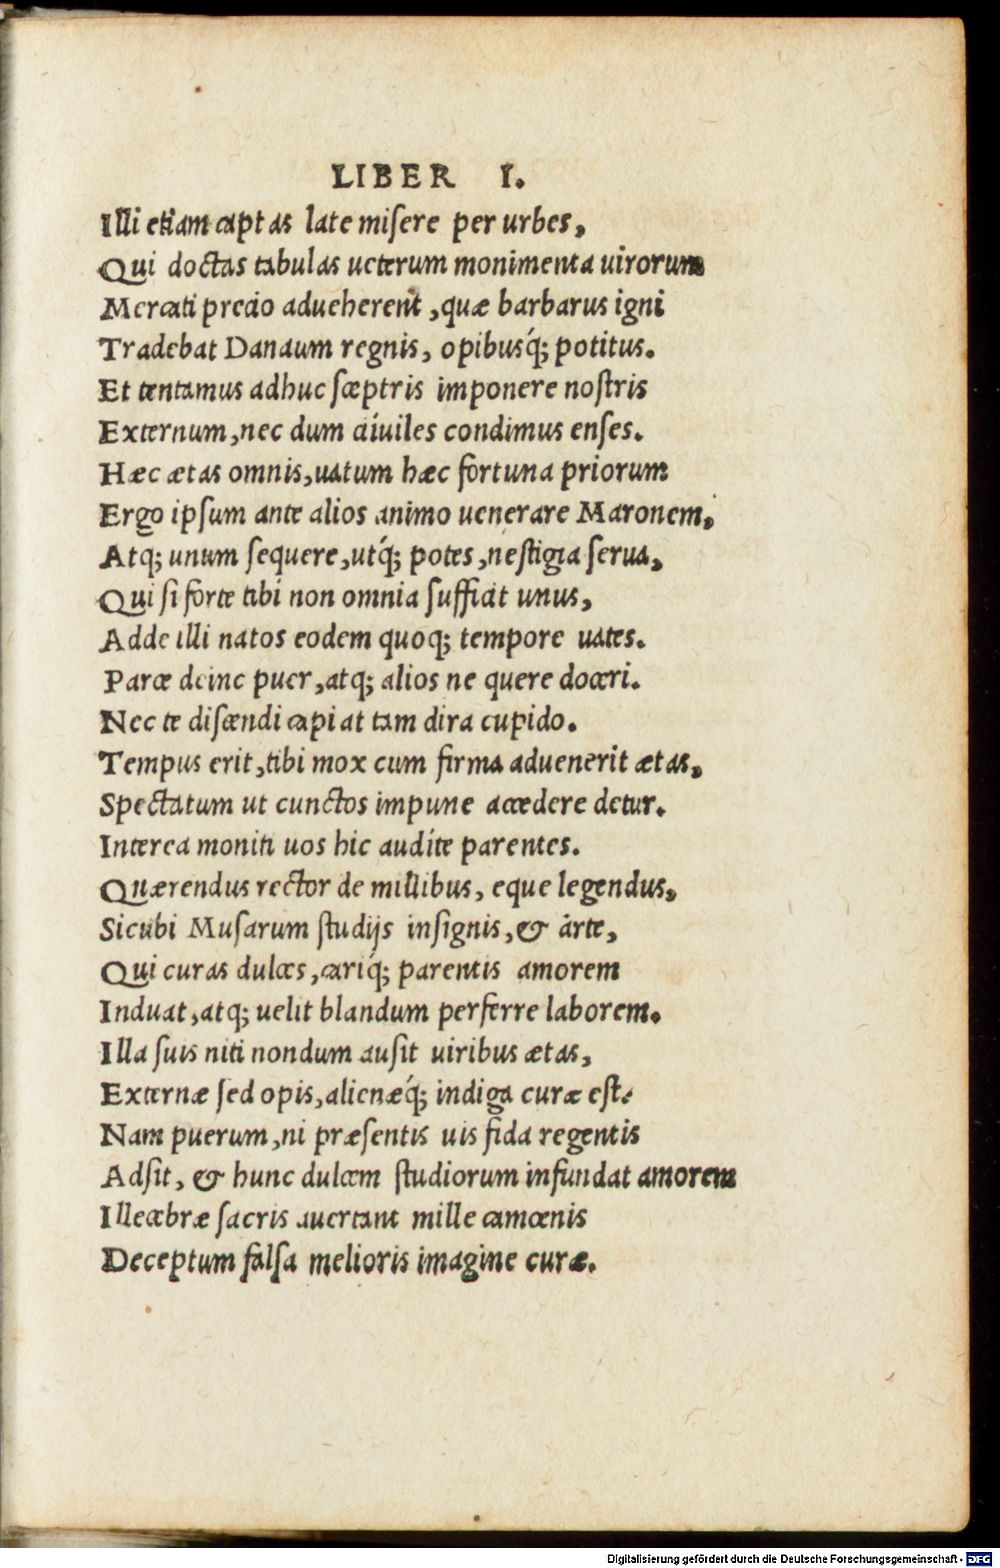 LIBER I.
Illi etiam captas late misere per urbes,
Qui doctas tabulas ueterum monimenta uirorum
Mercati precio adueherent, quæ barbarus igni
Tradebat Danaum regnis, opibusq́; potitus.
Et tentamus adhuc sceptris imponere nostris
Externum, nec dum ciuiles condimus enses.
Hæc ætas omnis, uatum hæc fortuna priorum
Ergo ipsum ante alios animo uenerare Maronem,
Atq; unum sequere, utq́; potes, nestigia serua,
Qui si forte tibi non omnia sufficit unus,
Adde illi natos eodem quoq; tempore uates.
Parce deinc puer, atq; alios ne quere doceri.
Nec te discendi capiat tam dira cupido.
Tempus erit, tibi mox cum firma aduenerit ætas,
Spectatum ut cunctos impune accedere detur.
Interea moniti uos hic audite parentes.
Quærendus rector de millibus, eque legendus,
Sicubi Musarum studijs insignis, & arte,
Qui curas dulces, cariq́; parentis amorem
Induat, atq; uelit blandum perferre laborem.
Illa suis niti nondum ausit uiribus ætas,
Externæ sed opis, alienæq́; indiga curæ est.
Nam puerum, ni præsentis uis fida regentis
Adsit, & hunc dulcem studiorum infundat amorem
Illecebræ sacris auertant mille camœnis
Deceptum falsa melioris imagine curæ.
Digitalisierung gefördert durch die Deutsche Forschungsgemeinschaft - DFG